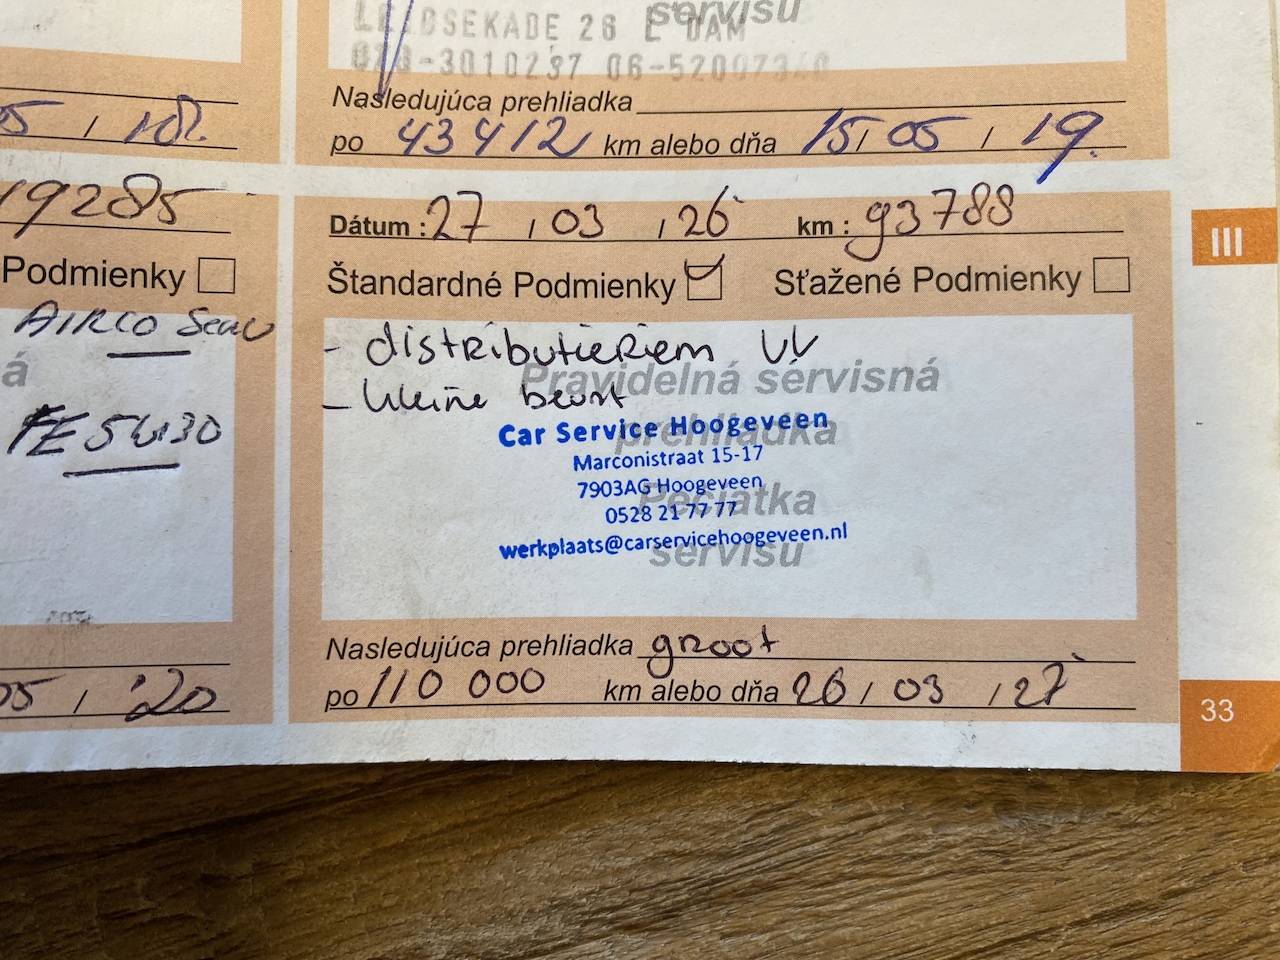 servisu
LEIDSEKADE 26 E DAM
Nasledujúca prehliadka
po 43412 km alebo dňa 15/05/19.
05/18.
19285
Podmienky
AIRCO
á
FE 5W30
05/'20
Dátum : 27/03/26 km : 93788
Štandardné Podmienky Sťažené Podmienky
- distributieriem VV
- kleine beurt
Pravidelná servisná
prehliadka
Pečiatka
servisu
Car Service Hoogeveen
Marconistraat 15-17
7903AG Hoogeveen
0528 21 77 77
werkplaats@carservicehoogeveen.nl
Nasledujúca prehliadka groot
po 110 000 km alebo dňa 26/03/27
III
33